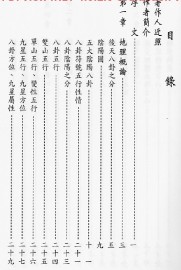 目 錄
著作人近照
作者簡介
序 文 一
第一章 地理概論 三
後天八卦之分 五
陰陽圖 九
五大陰陽八卦 十一
八卦符號五行性情 二十一
八卦陰陽之分 二十三
八卦五行 二十四
雙山五行 二十五
單山五行、雙性五行 二十六
九星五行、九星方位 二十八
八卦方位、九星屬性 二十九